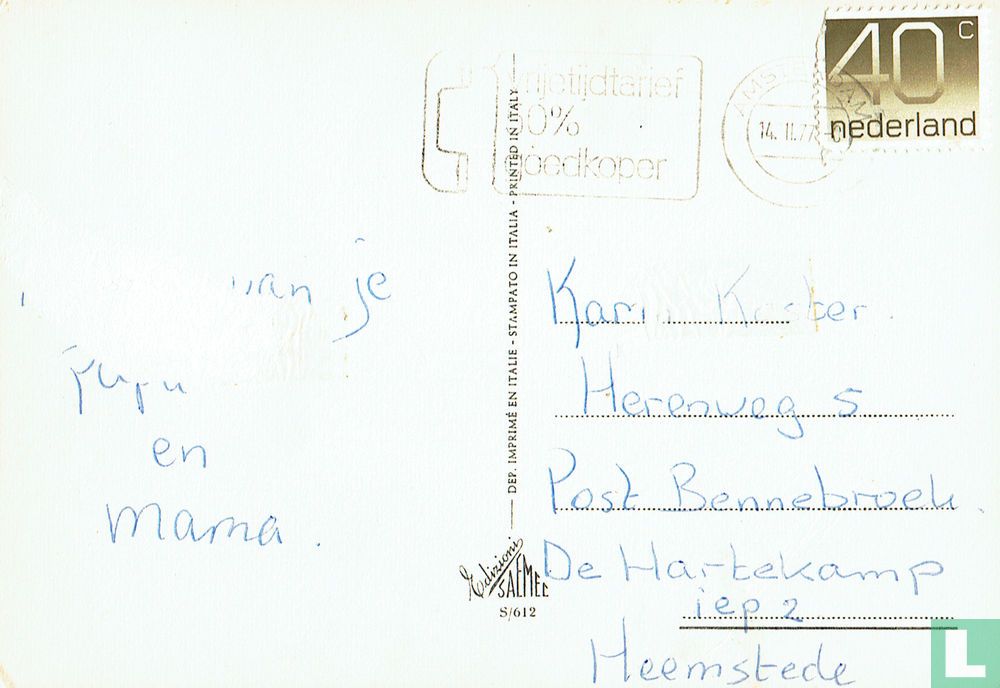 40 c
nederland
AMSTERDAM
14. II. 77
vrijetijdtarief
50%
goedkoper
DEP. IMPRIMÉ EN ITALIE - STAMPATO IN ITALIA - PRINTED IN ITALY
Edizioni
SAEMEC
S/612
van je
en
Mama.
Koster.
Herenweg 5
Post Bennebroek.
De Hartekamp
iep 2
Heemstede
L